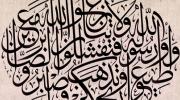 وأطيعوا الله ورسوله ولا تنازعوا فتفشلوا وتذهب ريحكم واصبروا إن الله مع الصابرين